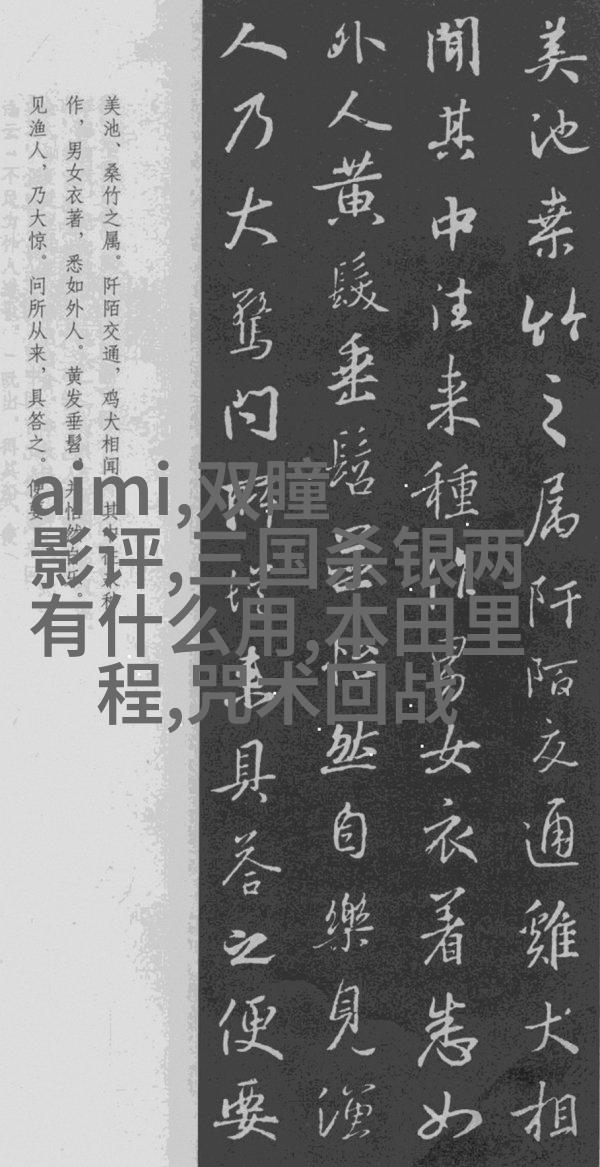 美池桒竹之属阡陌交通雞犬相
聞其中往来種作男女衣着悉如
外人黄髮垂髫并怡然自樂見漁
人乃大驚问所従来具答之便要
美池、桑竹之属。阡陌交通，鸡犬相闻。其
作，男女衣著，悉如外人。黄发垂髫，并怡然
见渔人，乃大惊。问所从来，具答之。便要
aimi,双瞳
影评,三国杀银两
有什么用,本田里
程,咒术回战